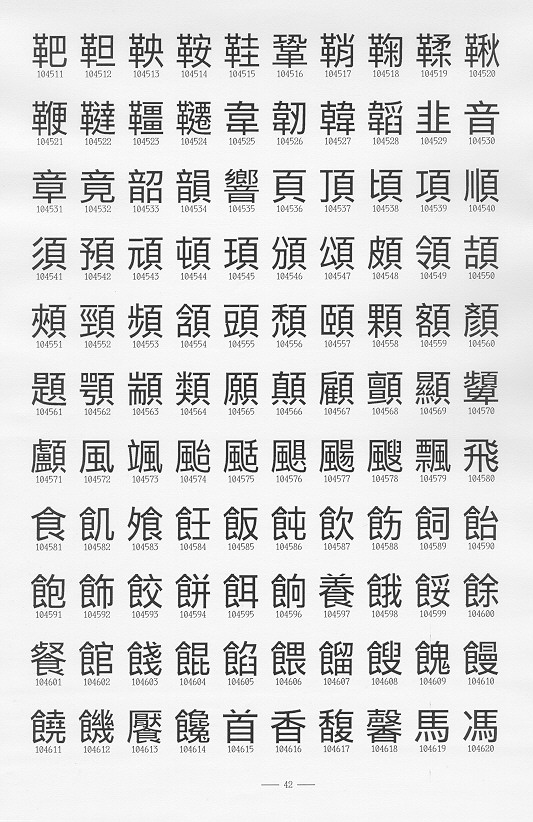 靶 靼 鞅 鞍 鞋 鞏 鞘 鞠 鞣 鞦
104511 104512 104513 104514 104515 104516 104517 104518 104519 104520
鞭 韃 韁 韆 韋 韌 韓 韜 韭 音
104521 104522 104523 104524 104525 104526 104527 104528 104529 104530
章 竟 韶 韻 響 頁 頂 頃 項 順
104531 104532 104533 104534 104535 104536 104537 104538 104539 104540
須 預 頑 頓 頊 頒 頌 頗 領 頡
104541 104542 104543 104544 104545 104546 104547 104548 104549 104550
頰 頸 頻 頷 頭 頹 頤 顆 額 顏
104551 104552 104553 104554 104555 104556 104557 104558 104559 104560
題 顎 顓 類 願 顛 顧 顫 顯 顰
104561 104562 104563 104564 104565 104566 104567 104568 104569 104570
顱 風 颯 颱 颳 颶 颺 颼 飄 飛
104571 104572 104573 104574 104575 104576 104577 104578 104579 104580
食 飢 飧 飪 飯 飩 飲 飭 飼 飴
104581 104582 104583 104584 104585 104586 104587 104588 104589 104590
飽 飾 餃 餅 餌 餉 養 餓 餒 餘
104591 104592 104593 104594 104595 104596 104597 104598 104599 104600
餐 館 餞 餛 餡 餵 餾 餿 餽 饅
104601 104602 104603 104604 104605 104606 104607 104608 104609 104610
饒 饑 饜 饞 首 香 馥 馨 馬 馮
104611 104612 104613 104614 104615 104616 104617 104618 104619 104620
— 42 —